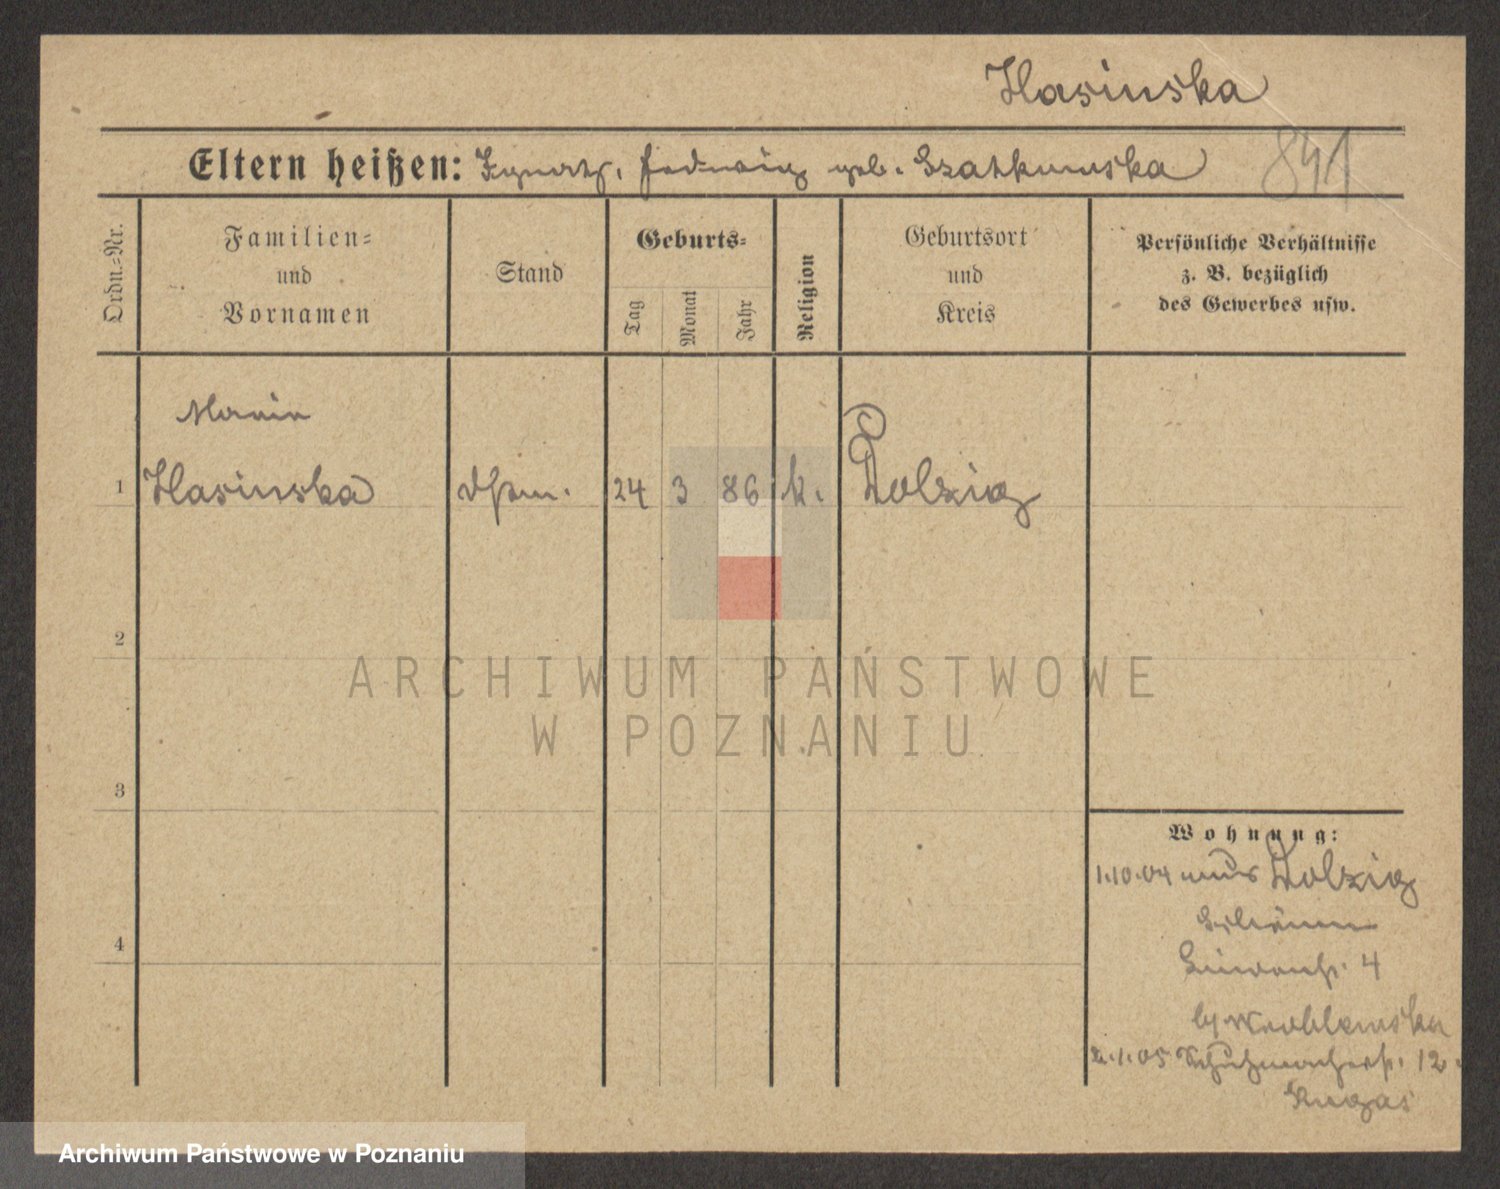 Hasinska
841
Eltern heißen: Ignatz, Hedwig geb. Szatkowska
Ordn.-Nr.
Familien-
und
Vornamen
Stand
Geburts-
Tag
Monat
Jahr
Religion
Geburtsort
und
Kreis
Persönliche Verhältnisse
z. B. bezüglich
des Gewerbes usw.
Maria
1 Hasinska 24 3 86 k. Dolzig
2
3
4
ARCHIWUM PAŃSTWOWE
W POZNANIU
Wohnung:
1.10.04 Dolzig
Schrimm
4
b/ Wroblewska
2.1.05 Schuhmacherstr. 12
Archiwum Państwowe w Poznaniu